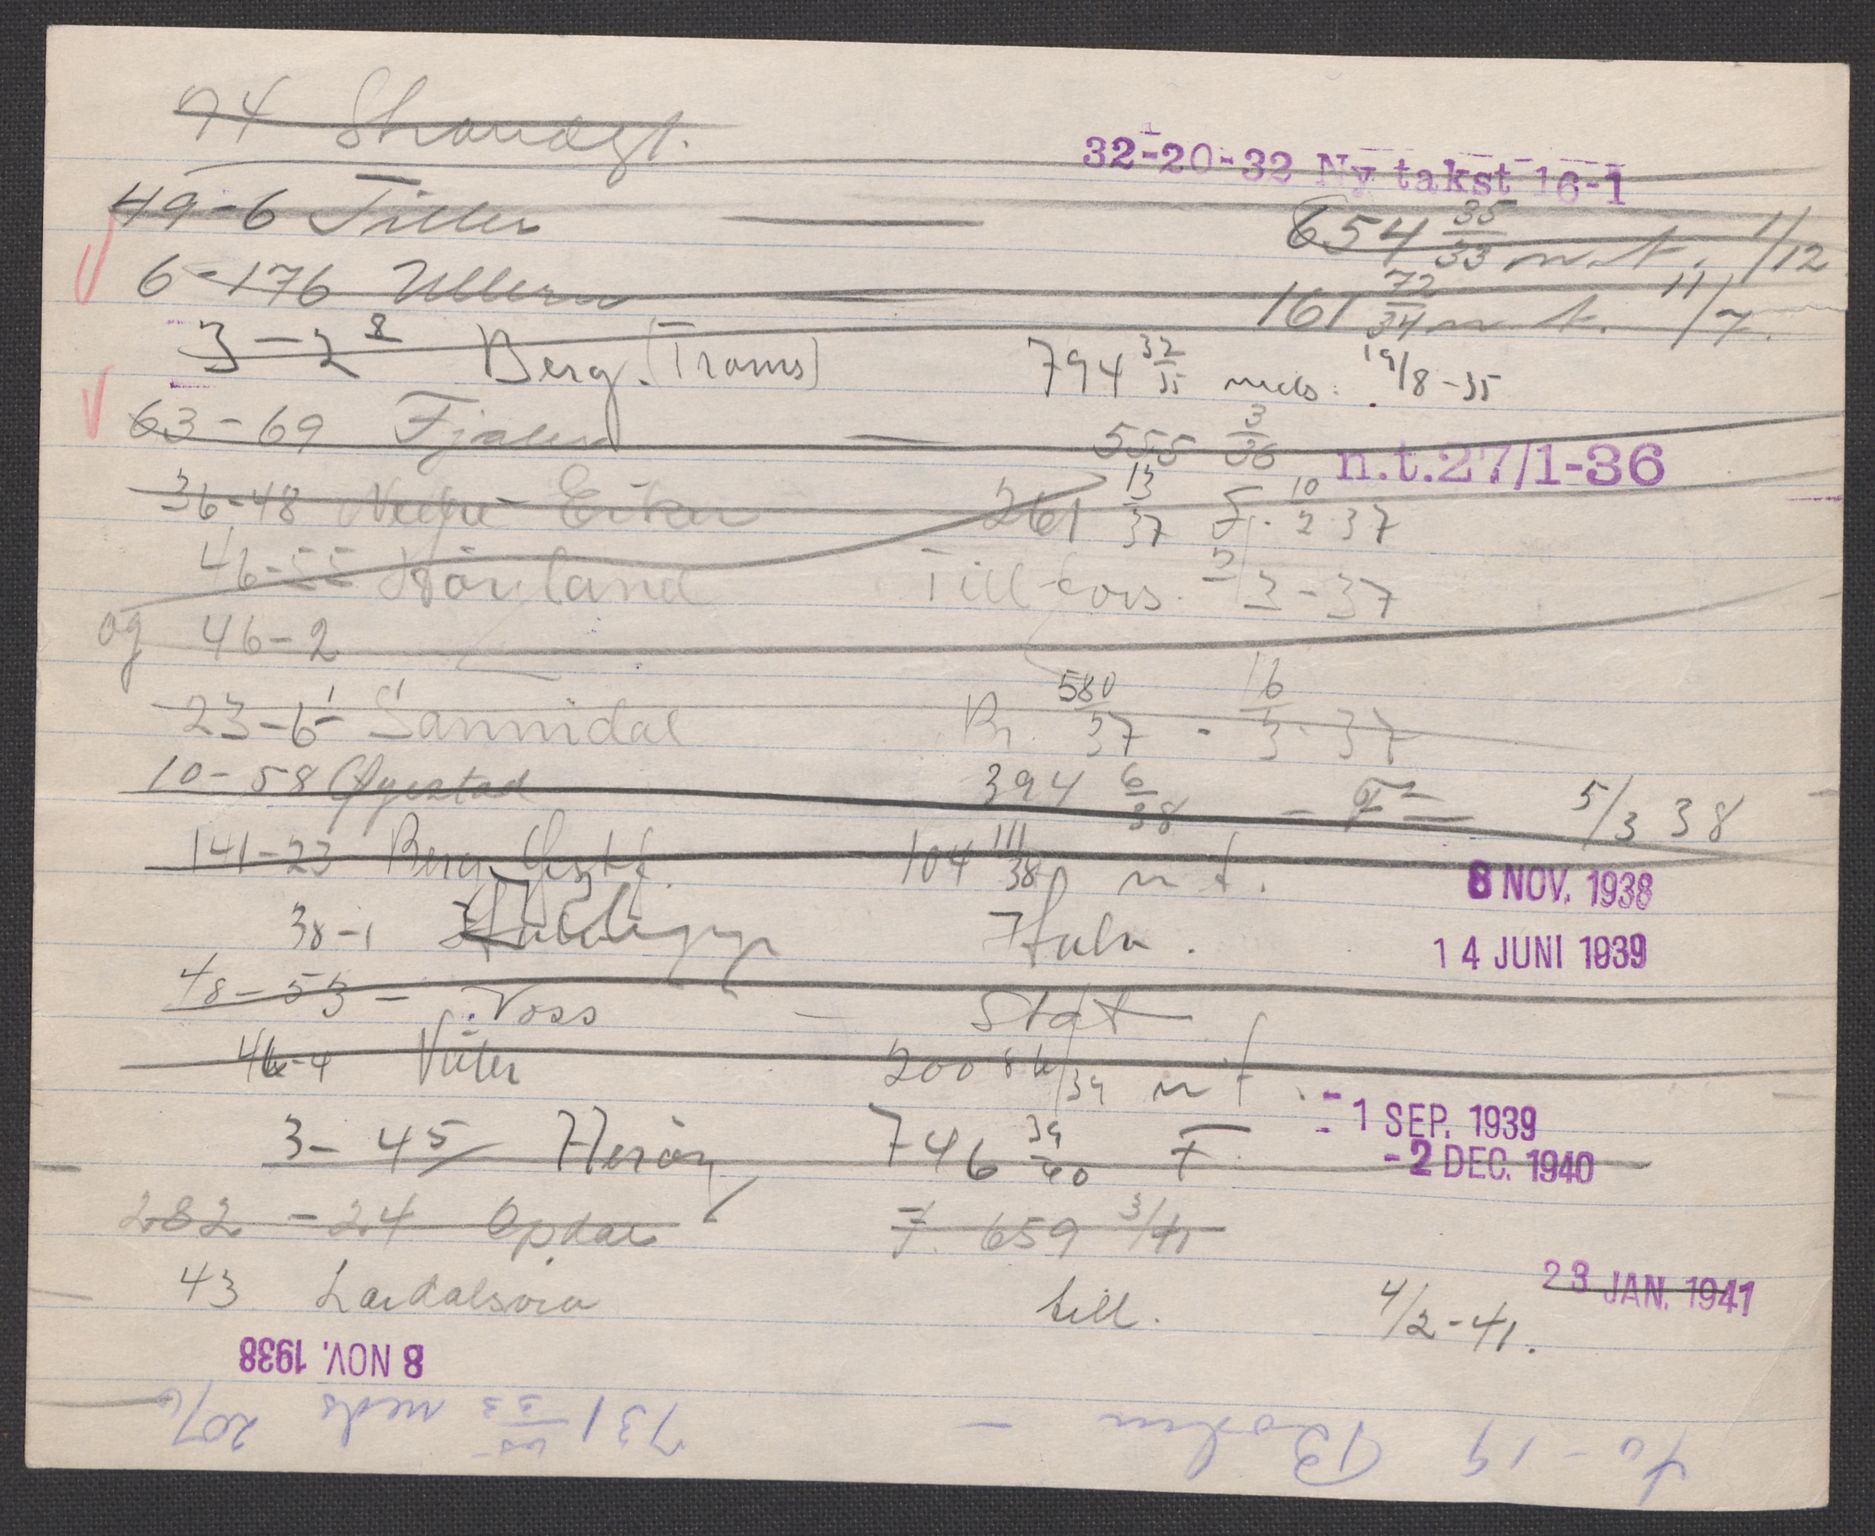 74 Strandgt.
32-20-32 Ny takst 16-1
49-6 Tiller — 654 35/33 n.t. 1/12
6-176 Ullern — 161 72/34 n.t. 11/7.
3-2 8 Berg. (Troms) 794 32/35 neds. 19/8-35
63-69 Fjaler — 555 3/36 n.t.27/1-36
36-48 Nedre-Eiker 261 13/37 F. 10/2 37
46-55 Hörland Till fors. 3/3-37
og 46-2
23-6 Sannidal Br. 580/37 - 16/3-37
10-58 Øyestad 394 6/38 - F 5/3 38
141-23 Berg 104 111/38 n.t. 8 NOV. 1938
38-1 14 JUNI 1939
48-53 - Voss - Stat
46-4 200 86/39 n.t. - 1 SEP. 1939
3-45 Herøy 746 39/40 F. - 2 DEC. 1940
282-24 Opdal F. 659 3/41 23 JAN. 1941
43 Lærdalsøra till. 4/2-41.
8 NOV. 1938
70-19 — 731 55/33 neds 20/6